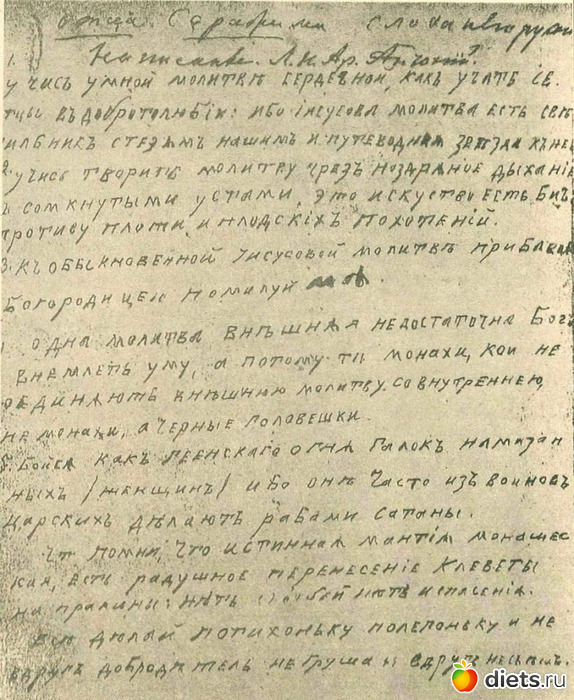 отца Серафима слова
1. Написание.
учись умной молитвѣ сердечной, какъ учатъ св.
отцы въ добротолюбіи: ибо Іисусова молитва есть свѣ
илбникъ стезямъ нашим и путеводная звѣзда къ не
учись творить молитву чрез ноздряное дыханіе
и сомкнутыми устами, это искуство есть бичъ
противу плоти и плодскіхъ похотеній.
3. къ обыкновенной Іисусовой молитвѣ прибавля
Богородицею помилуй
одна молитва внѣшняя недостаточна Богъ
внемлетъ уму, а потому ти монахи, кои не
оединяютъ внѣшнюю молитву со внутреннею,
не монахи, а черные головешки.
бойся какъ геенскаго огня галокъ намазан
ныхъ (женщинъ) ибо онѣ часто изъ воиновъ
царскихъ дѣлаютъ рабами сатаны.
помни, что истинная мантія монашес
кая, есть радушное перенесеніе клеветы
на пралины: нѣтъ нѣтъ и спасенія.
все дюлай потихоньку полегоньку и не
вдругъ добродитель не груша и вдругъ несъѣшь.
diets.ru